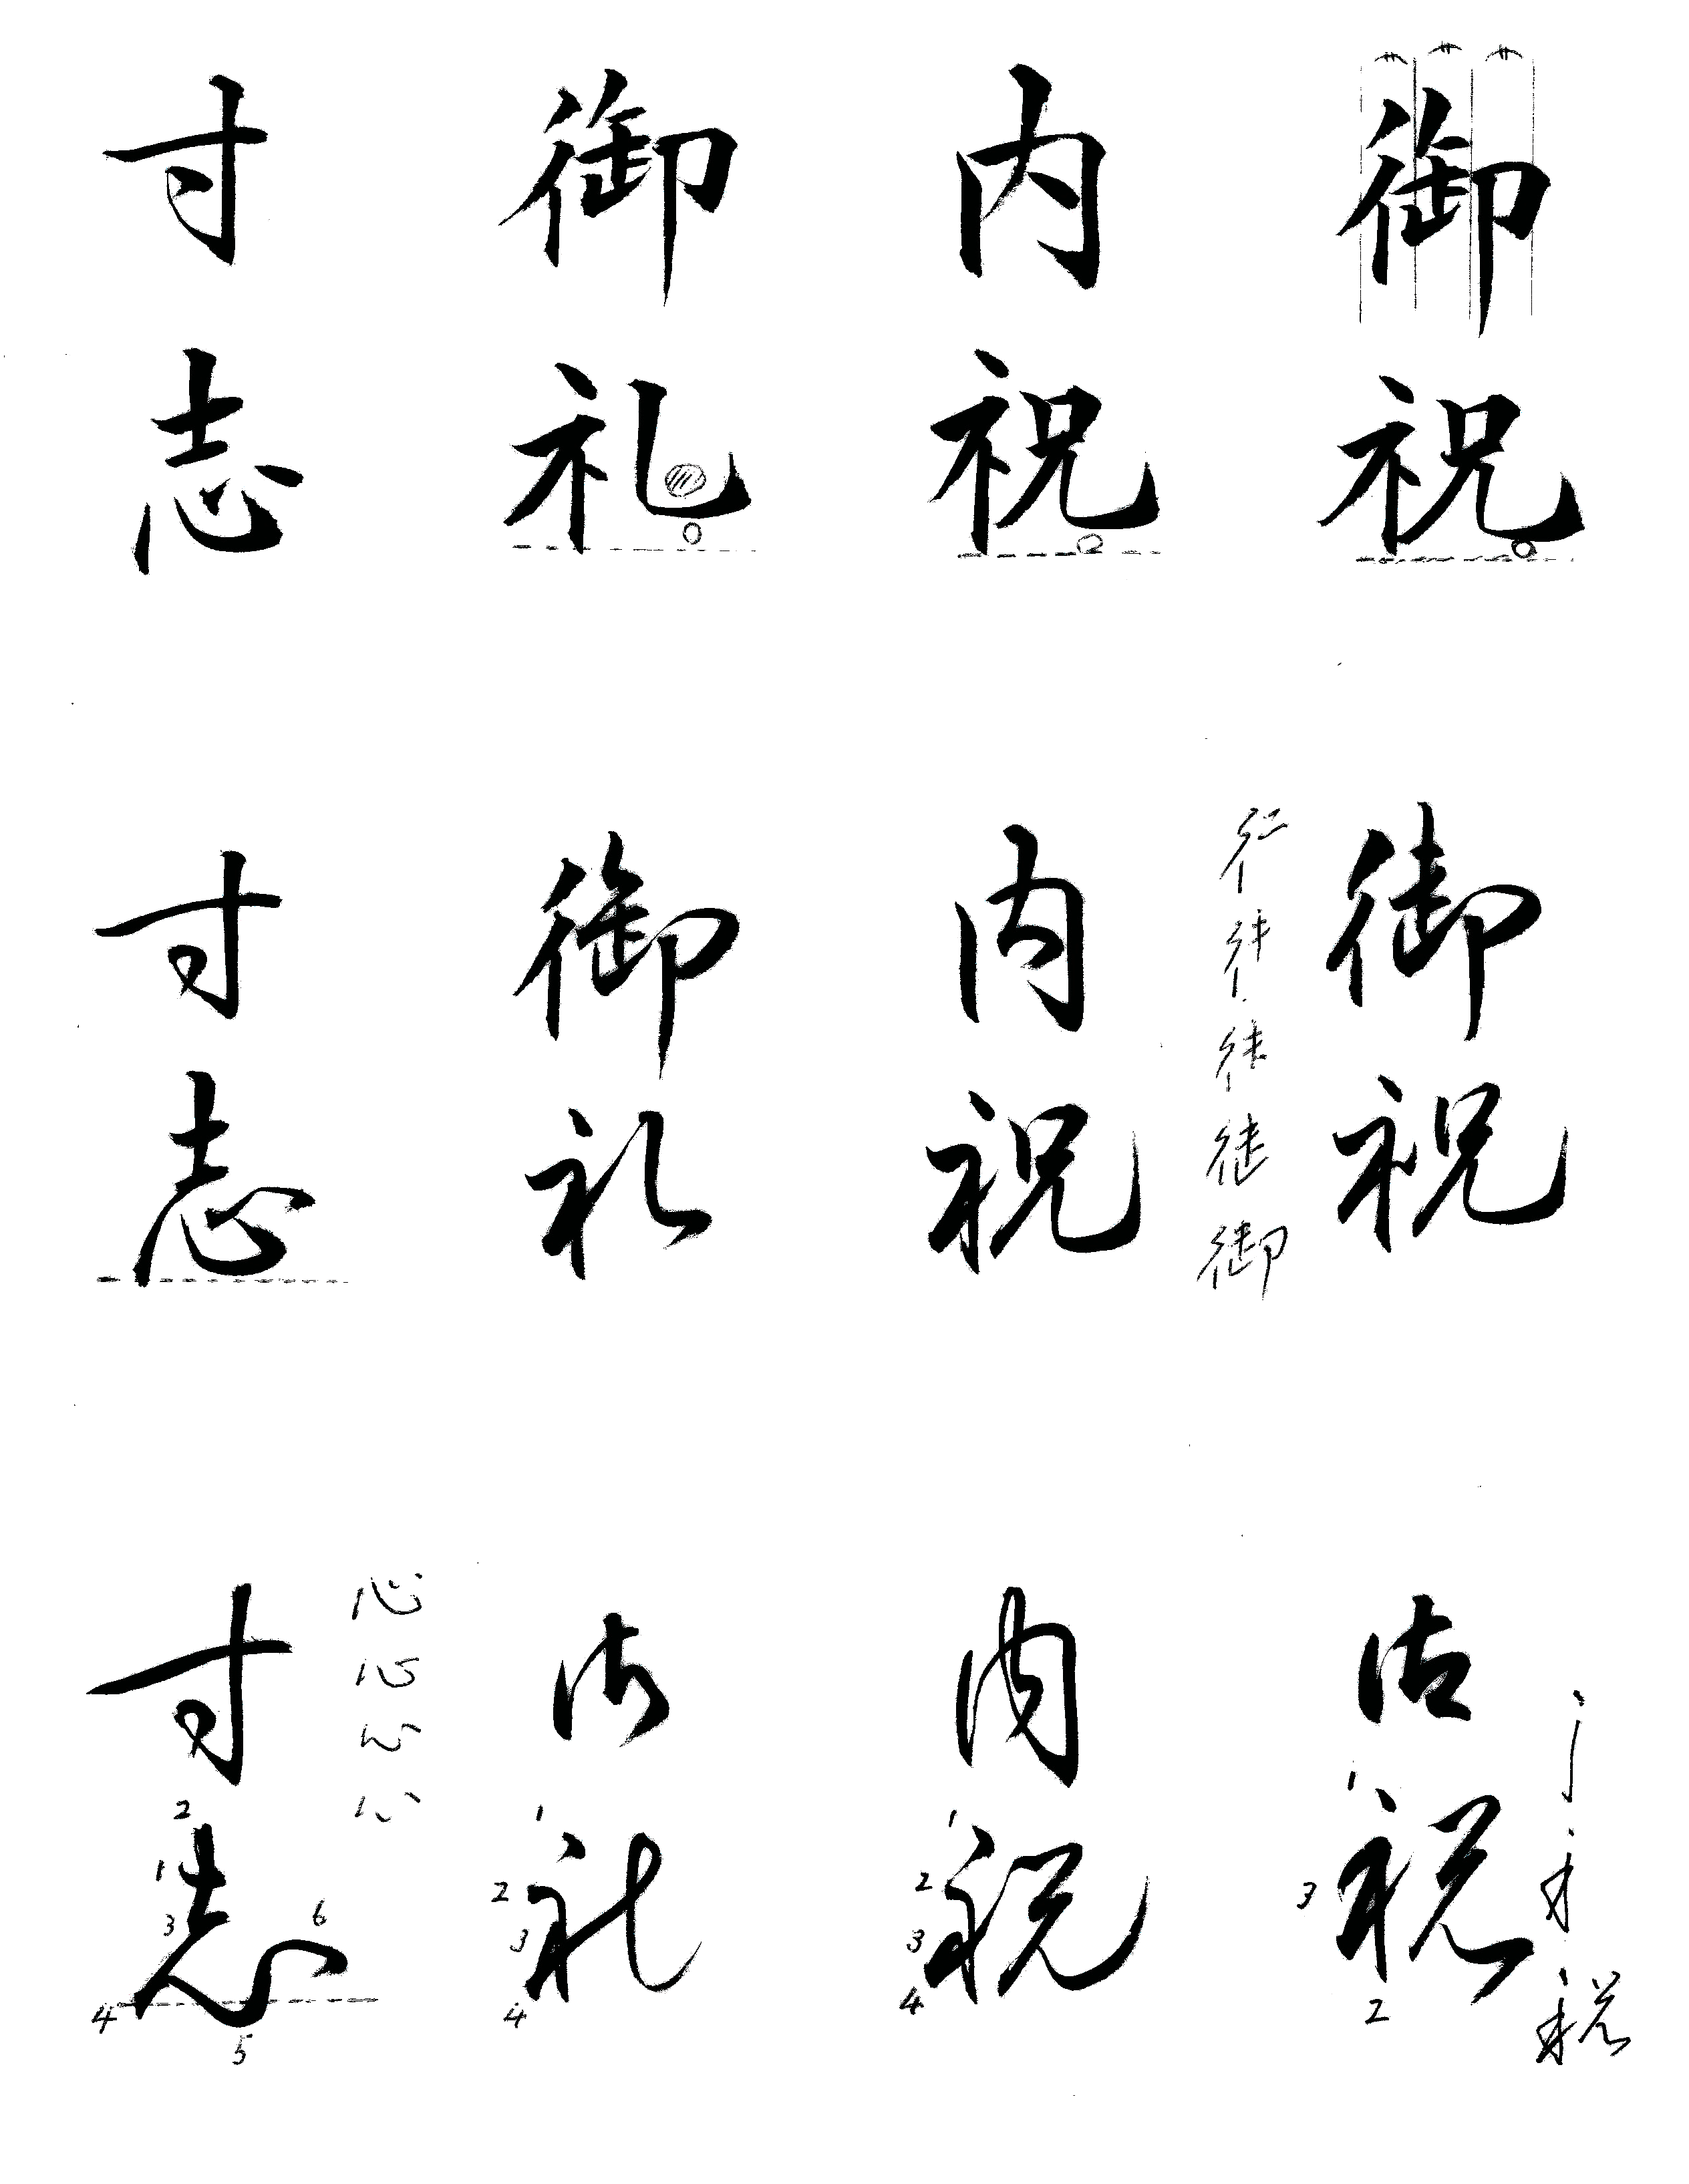 御祝
内祝
御礼
寸志
御祝
御
内祝
御礼
寸志
御祝
1
2
3
祝
内祝
1
2
3
4
御礼
1
2
3
4
心
心
心
心
寸志
1
2
3
4
5
6